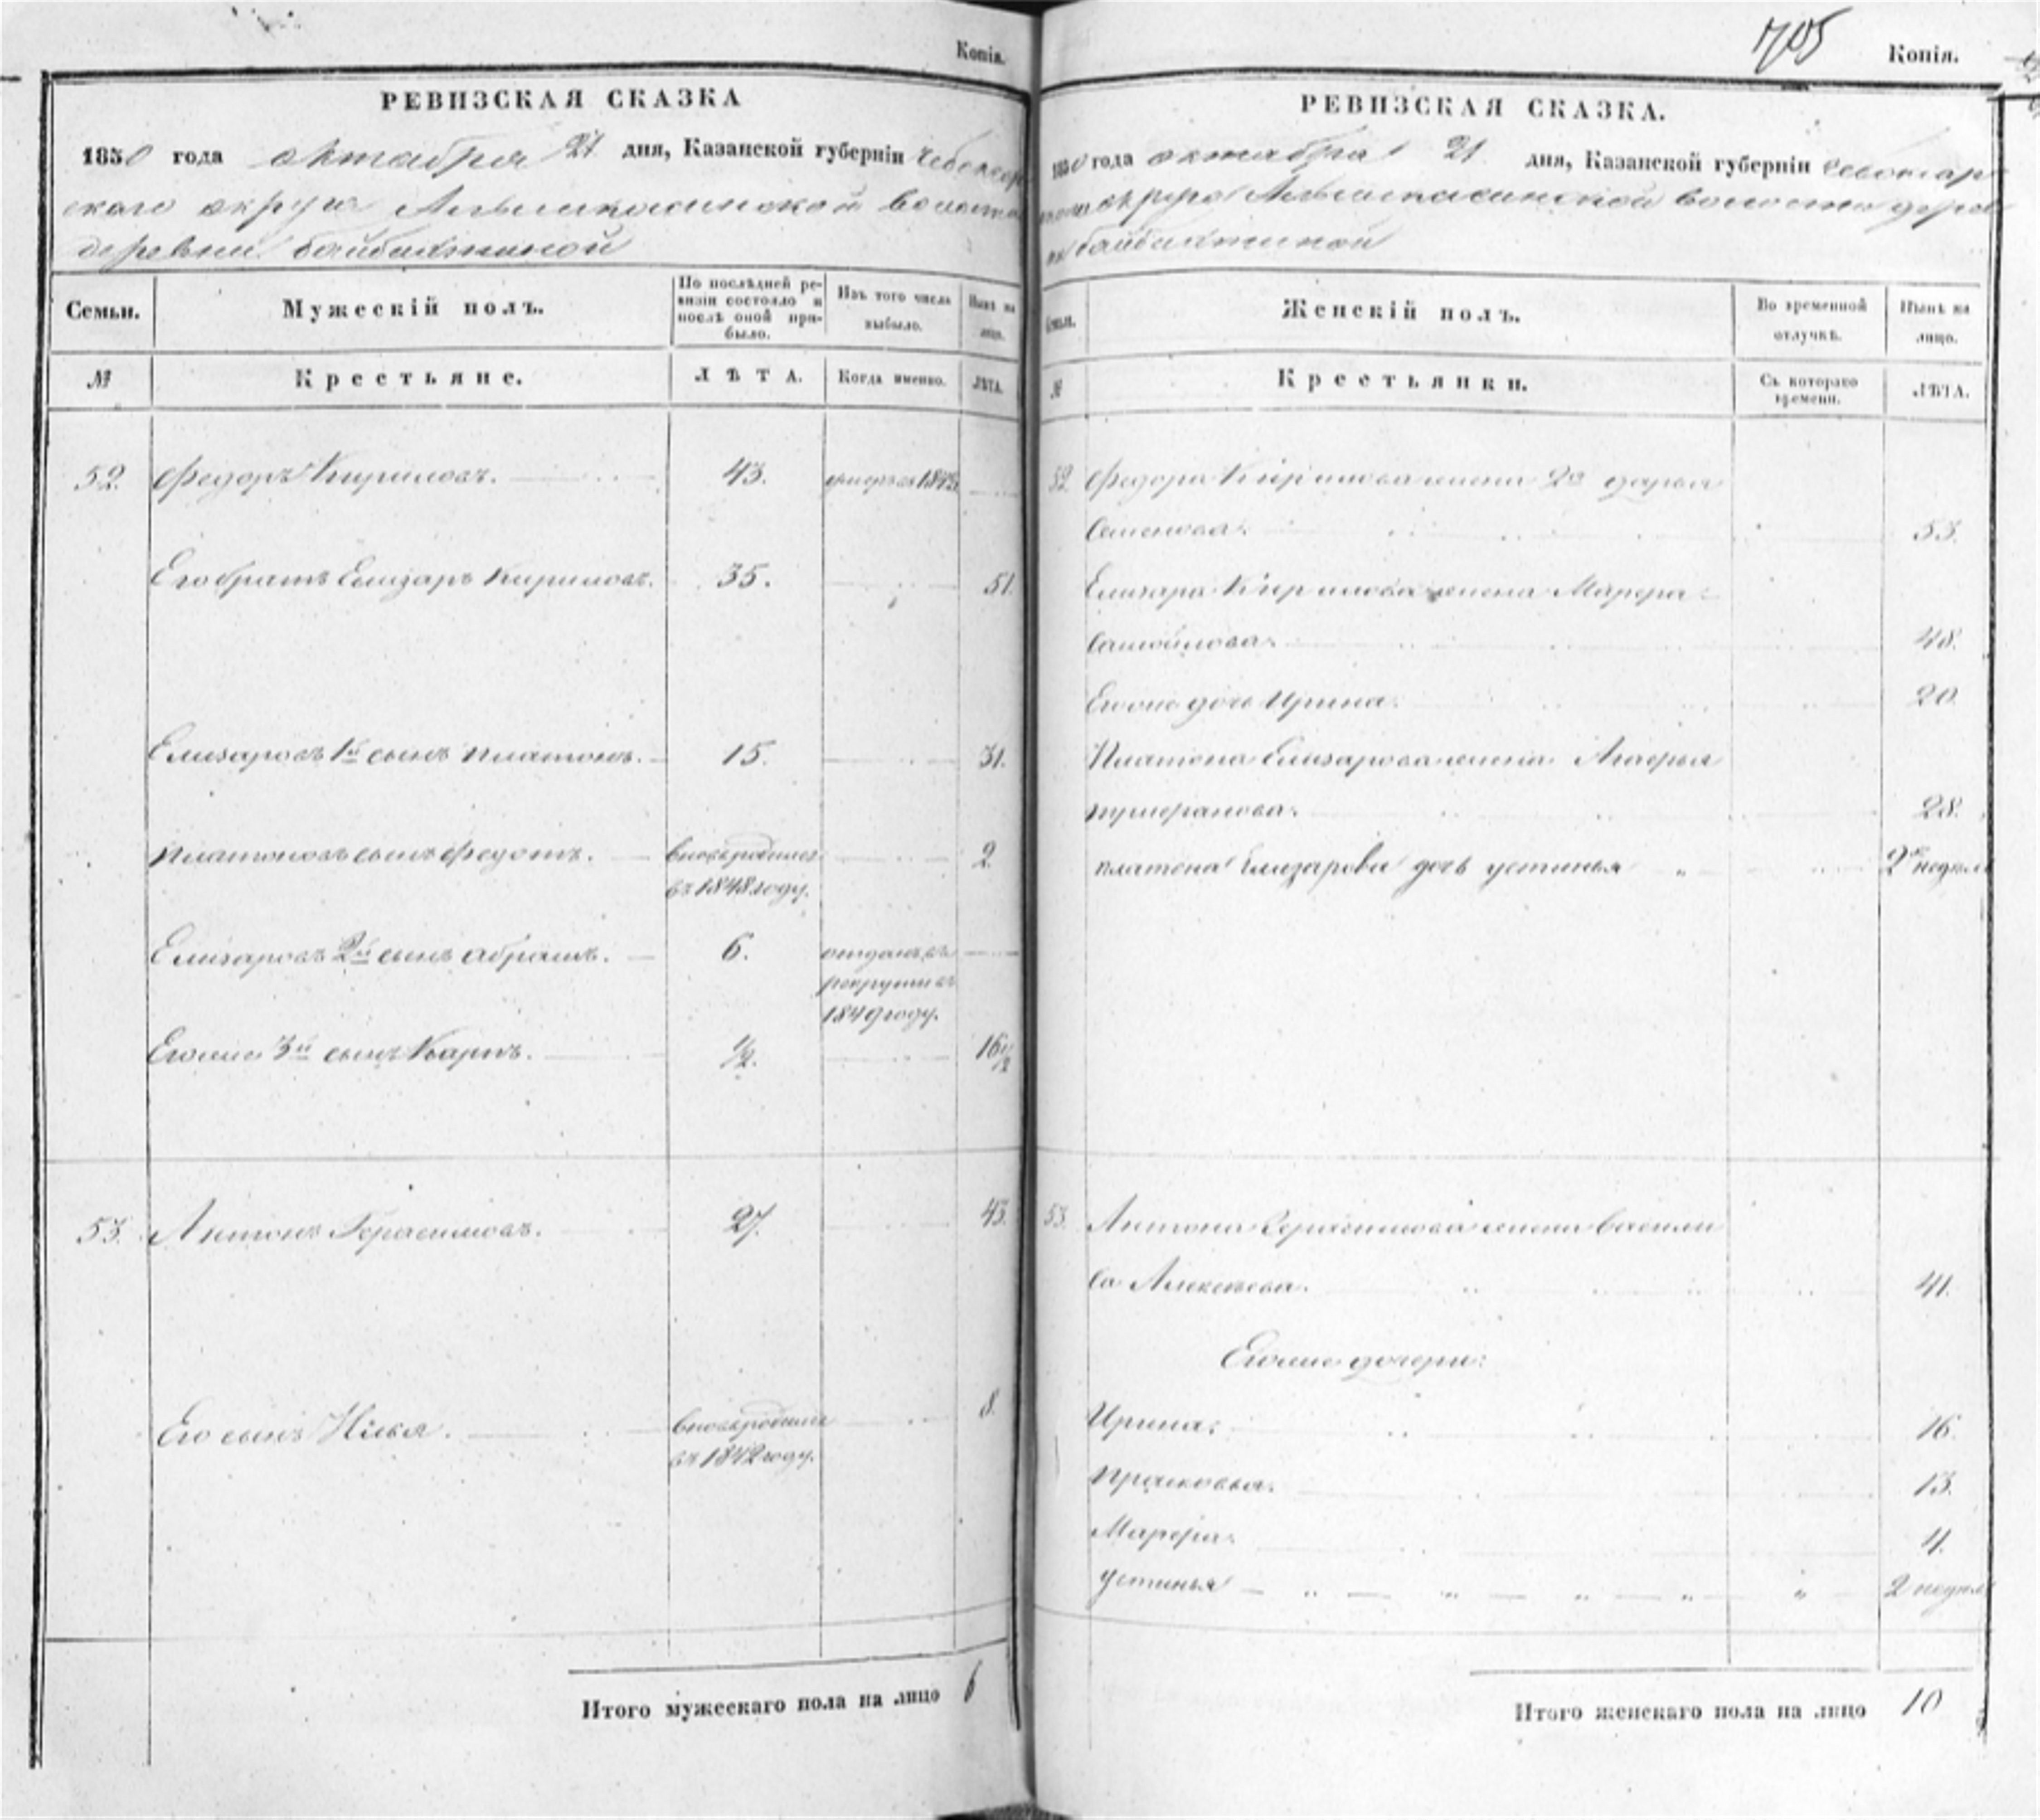 Копія.
РЕВИЗСКАЯ СКАЗКА
1850 года октября 21 дня, Казанской губерніи Чебоксар
скаго округа Алымкасинской волости
деревни Байбахтиной
Семьи.
Мужескій полъ.
По послѣдней ре-
визіи состояло и
послѣ оной при-
было.
Изъ того числа
выбыло.
Нынѣ на
лицо.
№
Крестьяне.
ЛѢТА.
Когда именно.
ЛѢТА.
52. Федоръ Кириловъ. 43. умеръ въ
Его братъ Елизаръ Кириловъ. 35. 51.
Елизаровъ 1й сынъ Платонъ. 15. 31.
Платоновъ сынъ Федотъ. вновь родился 2
въ 1848 году.
Елизаровъ 2й сынъ Абрамъ. 6. отданъ въ
рекруты въ
1849 году.
Его же 3й сынъ Карпъ. 1/2. 16 1/2
53. Антонъ Герасимовъ. 27. 43.
Его сынъ Илья. вновь родился 8.
въ 1842 году.
Итого мужескаго пола на лицо 6
705
Копія.
РЕВИЗСКАЯ СКАЗКА.
1850 года октября 21 дня, Казанской губерніи Чебоксар
скаго округа Алымкасинской волости дерев
ни Байбахтиной
Семьи.
Женскій полъ.
Во временной
отлучкѣ.
Нынѣ на
лицо.
№
Крестьянки.
Съ котораго
времени.
ЛѢТА.
52. Федора Кирилова жена 2я Дарья
Семенова. 53.
Елизара Кирилова жена Марфа
Самойлова. 48.
Его же дочь Ирина. 20.
Платона Елизарова жена
28.
Платона Елизарова дочь Устинья 2 недѣли
53. Антона Герасимова жена Васили
са Алексѣева. 41.
Его же дочери:
Ирина. 16.
Прасковья. 13.
Марфа. 4.
Устинья 2 недѣли
Итого женскаго пола на лицо 10